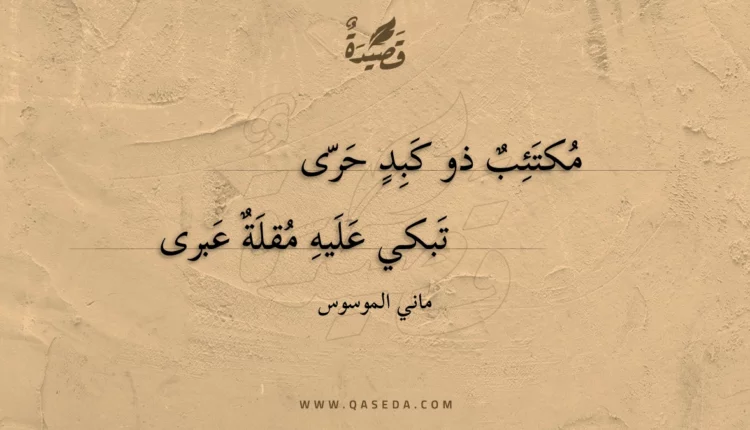 قَصِيدَةٌ
مُكتَئِبٌ ذو كَبِدٍ حَرّى
تَبكي عَلَيهِ مُقلَةٌ عَبرى
ماني الموسوس
WWW.QASEDA.COM